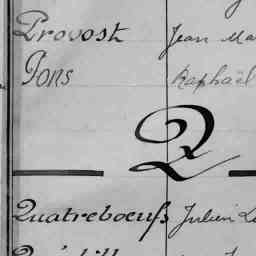 Provost Jean Ma
Pons Raphaël
Q
Quatreboeufs Julien L